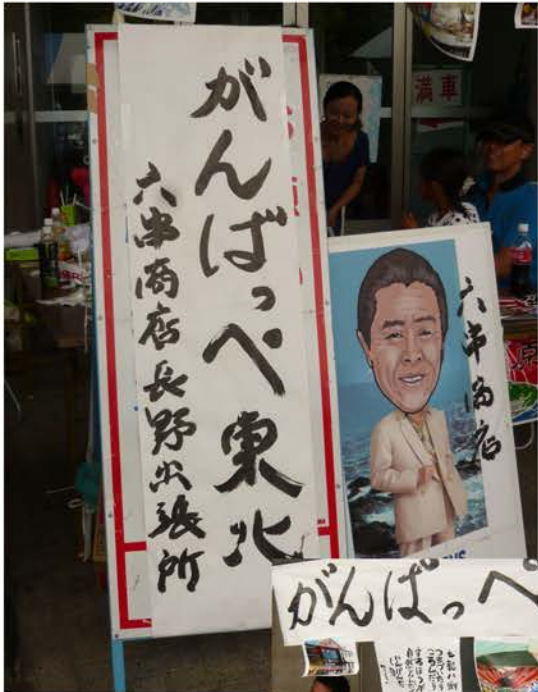 がんばっぺ東北
六串商店長野出張所
六串商店
満車
がんばっぺ